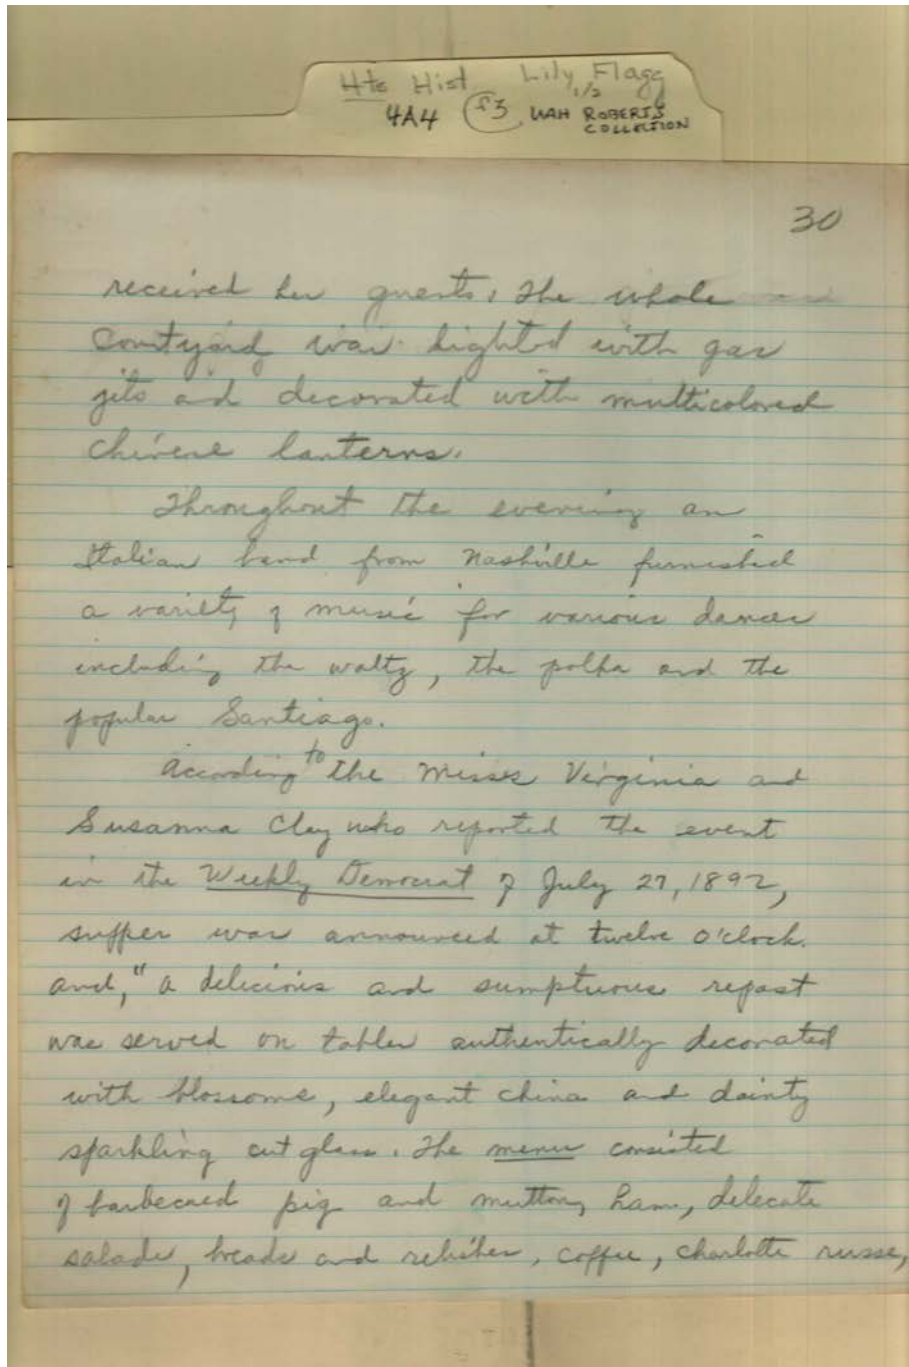 Hts Hist Lily Flagg
1/2
4A4 f3 UAH ROBERTS
COLLECTION
30
received her guests. The whole
courtyard was lighted with gas
jets and decorated with multicolored
Chinese lanterns.
Throughout the evening an
Italian band from Nashville furnished
a variety of music for various dances
including the waltz, the polka and the
popular Santiago.
According to the Misses Virginia and
Susanna Clay who reported the event
in the Weekly Democrat of July 27, 1892,
supper was announced at twelve o'clock.
and, "a delicious and sumptuous repast
was served on tables authentically decorated
with blossoms, elegant china and dainty
sparkling cut glass. The menu consisted
of barbecued pig and mutton, ham, delecate
salads, breads and relishes, coffee, charlotte russe,